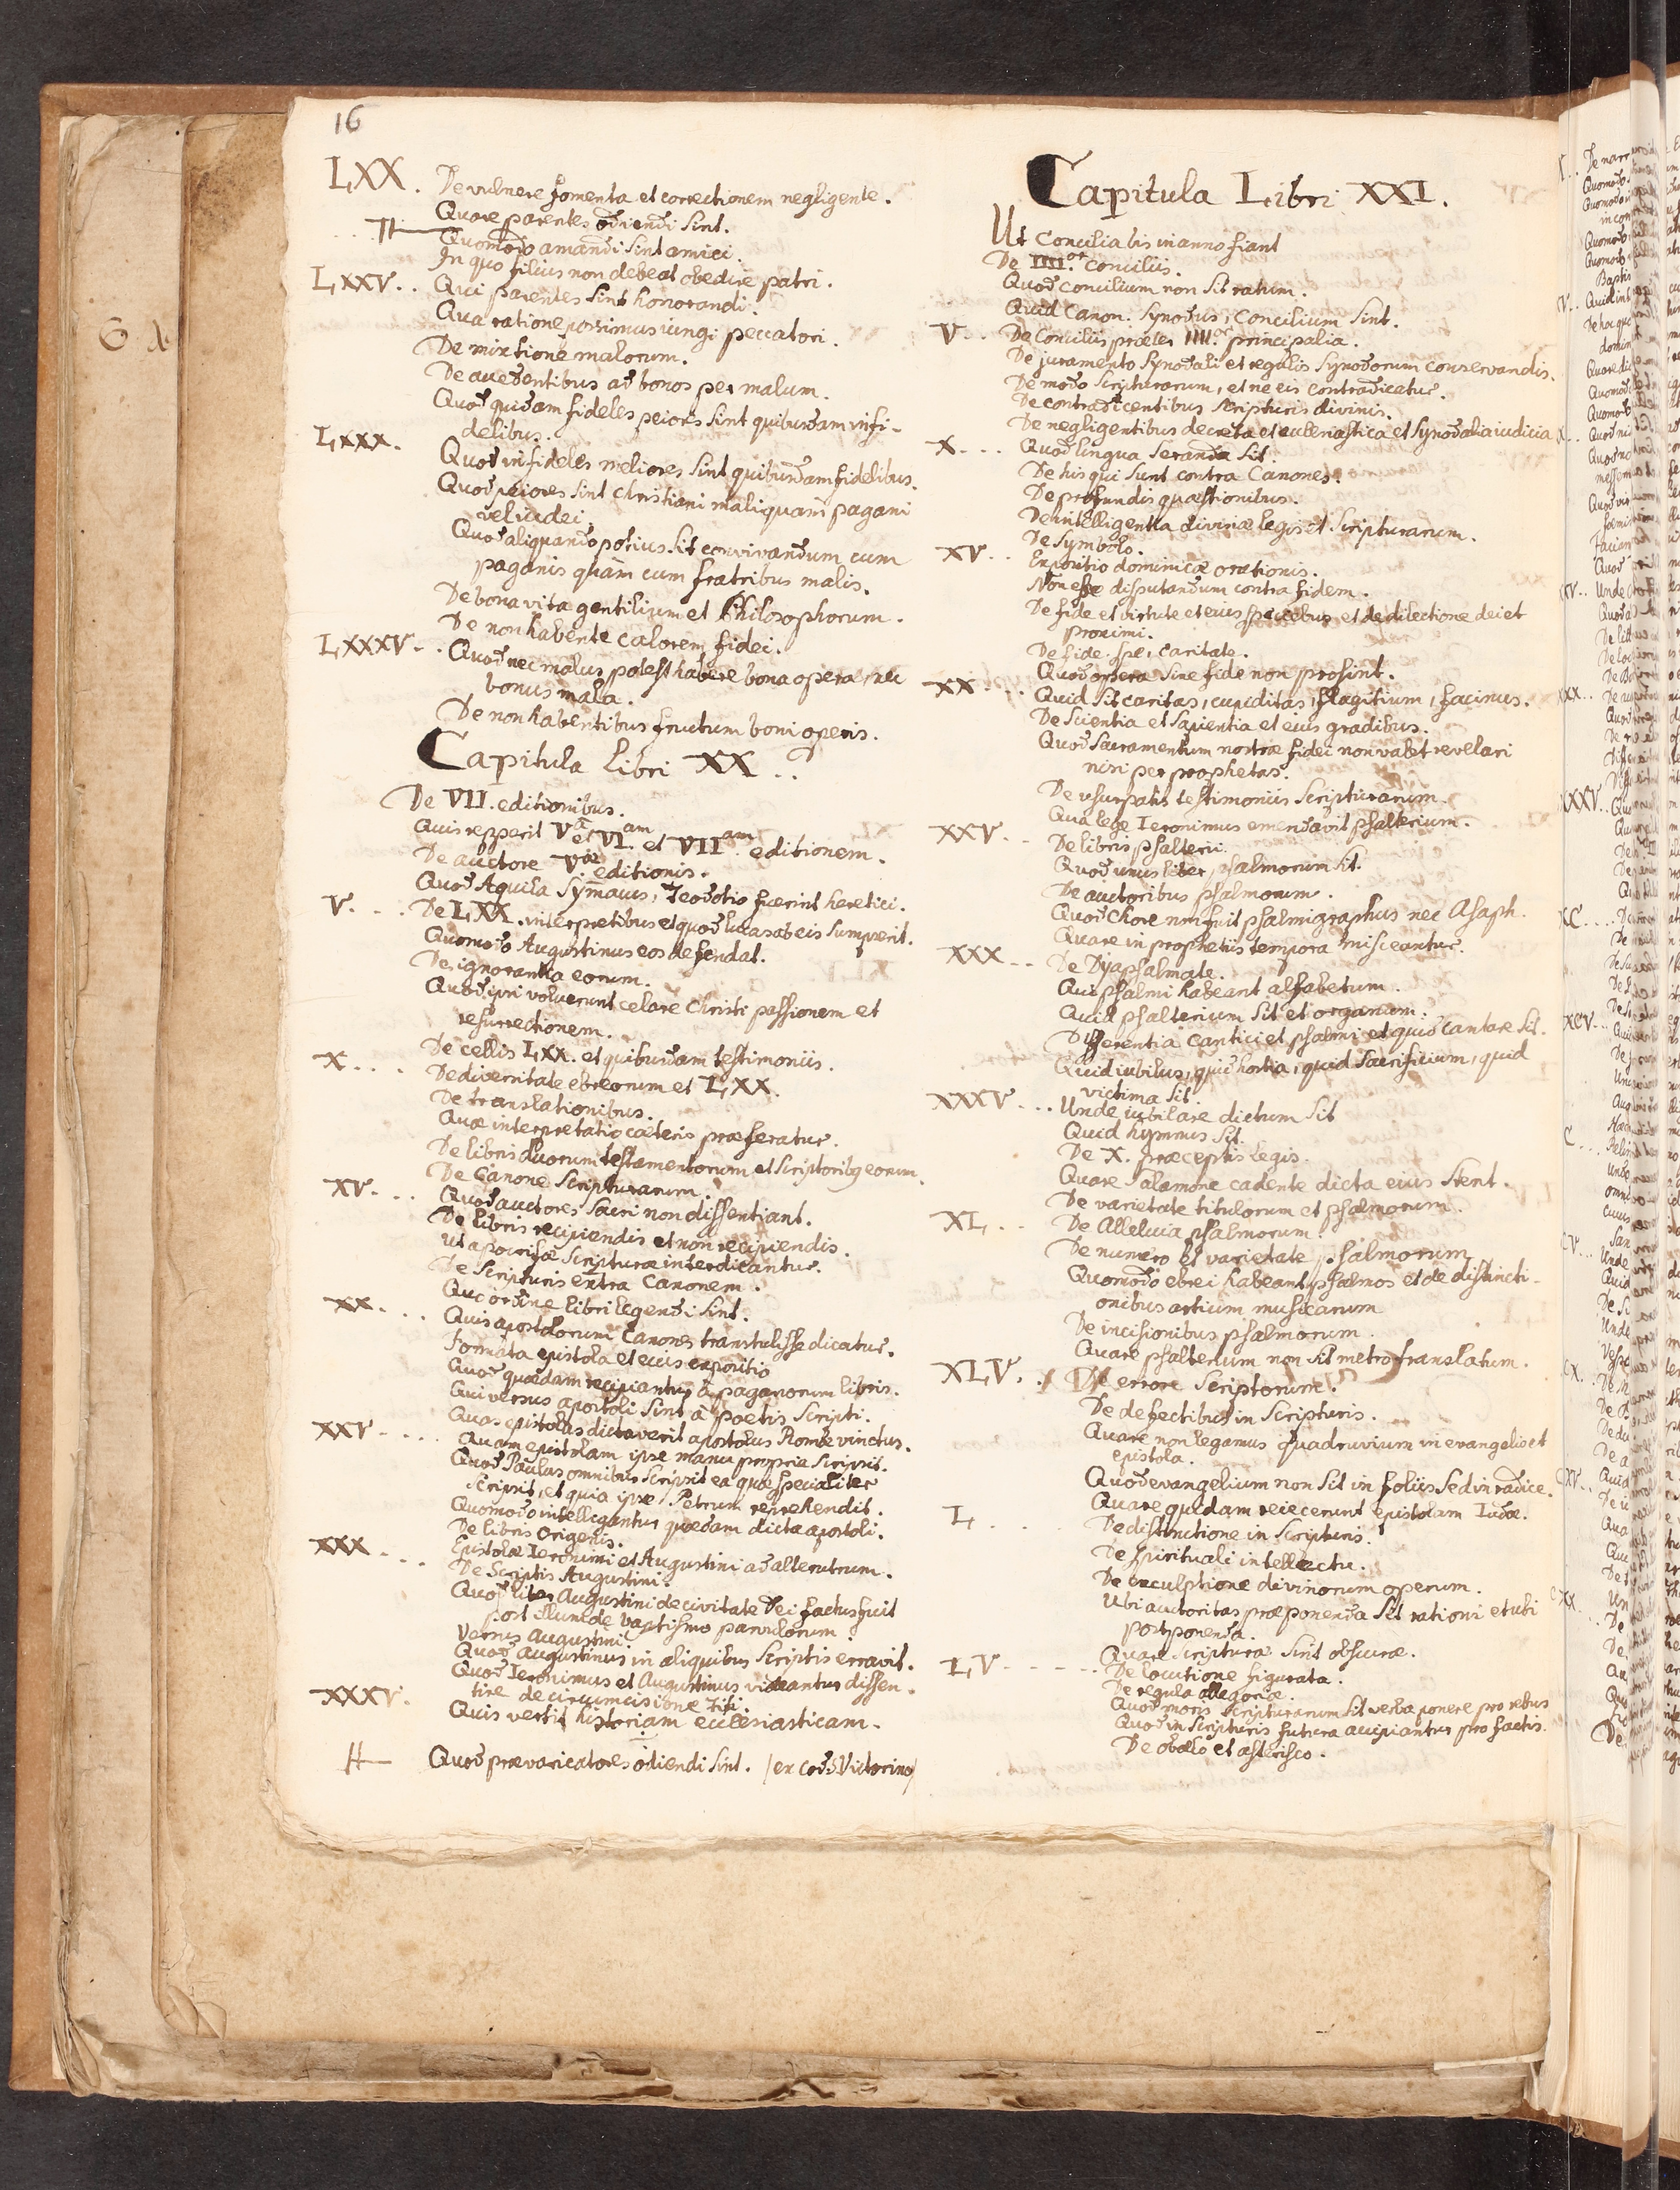 16
LXX. De vulnere fomenta et correctionem negligente.
Quare parentes odiendi sint.
Quomodo amandi sint amici.
In quo filius non debeat obedire patri.
LXXV. . Qui parentes sint honorandi.
Qua ratione possimus iungi peccatori.
De mixtione malorum.
De accedentibus ad bonos per malum.
Quod quidam fideles peiores sint quibusdam infi-
delibus.
LXXX. Quod infideles meliores sint quibusdam fidelibus.
Quod peiores sint Christiani mali quam pagani
vel iudei.
Quod aliquando potius sit convivandum cum
paganis quam cum fratribus malis.
De bona vita gentilium et Philosophorum.
De non habente calorem fidei.
LXXXV - . Quod nec malus potest habere bona opera, nec
bonus mala.
De non habentibus fructum boni operis.
Capitula Libri XX . .
De VII. editionibus.
Quis repperit Vam et VI.am et VIIam editionem.
De auctore Vae editionis.
Quod Aquila Symacus, Teodotio fuerint heretici.
V. - . . De LXX. interpretibus et quod lucas ab eis sumpserit.
Quomodo Augustinus eos defendat.
De ignorantia eorum.
Quod ipsi voluerunt celare Christi passionem et
resurrectionem.
De cellis LXX. et quibusdam testimoniis.
X. . . . De diversitate ebreorum et LXX.
De translationibus.
Quae interpretatio caeteris praeferatur.
De libris duorum testamentorum et scriptoribq eorum.
De Canone Scripturarum.
XV. . . . Quod auctores sacri non dissentiant.
De libris recipiendis et non recipiendis.
Ut apocrifae scripturae interdicantur.
De Scripturis extra Canonem.
Quo ordine libri legendi sint.
XX. . . . Quis apostolorum Canones transtulisse dicatur.
Formata epistola et eius expositio
Quod quaedam recipiantur à paganorum libris.
Qui versus apostoli sint à poetis scripti.
Quas epistolas dictaverit apostolus Romae vinctus.
XXV - . . . Quam epistolam ipse manu propria scripsit.
Quod Paulus omnibus scripsit ea quae specialiter
scripsit, et quia ipse Petrum reprehendit.
Quomodo intelligantur quaedam dicta apostoli.
De libris Origenis.
XXX - . . Epistolae Ieronimi et Augustini ad alterutrum.
De Scriptis Augustini.
Quod liber Augustini de civitate Dei factus fuit
post illum de baptismo parvulorum
Versus Augustini.
Quod Augustinus in aliquibus scriptis erravit.
Quod Ieronimus et Augustinus videantur dissen-
tire de circumcisione Titi.
XXXV. Quis vertit historiam ecclesiasticam.
Quod praevaricatores odiendi sint. (ex cod. S. Victorino)
Capitula Libri XXI.
Ut Concilia bis in anno fiant
De IIII.or conciliis.
Quod concilium non sit ratum.
Quid Canon. Synodus, Concilium sint.
V . . . De Conciliis praeter IIII.or principalia.
De juramento Synodali et regulis Synodorum conservandis.
De modo Scripturarum, et ne eis contradicatur.
De contradicentibus scripturis divinis.
De negligentibus decreta et ecclesiastica et Synodalia iudicia
X. - . . Quod lingua seranda sit.
De his qui sunt contra Canones.
De profundis quaestionibus.
De intelligentia divinae legis et Scripturarum.
De Symbolo.
XV. . . Expositio dominicae orationis.
Non esse disputandum contra fidem.
De fide et virtute et eius speciebus et de dilectione dei et
proximi.
De fide, spe, caritate.
Quod opera sine fide non prosint.
XX - . . . Quid sit caritas, cupiditas, flagitium, facinus.
De Scientia et Sapientia et eius gradibus.
Quod sacramentum nostrae fidei non valet revelari
nisi per prophetas.
De usurpatis testimoniis scripturarum
Qua lege Ieronimus emendavit psalterium.
XXV. . De libris psalterii.
Quod unus liber psalmorum sit.
De auctoribus psalmorum.
Quod Chore non fuit psalmigraphus nec Asaph.
Quare in prophetiis tempora misceantur.
XXX . . De Dyapsalmate.
Qui psalmi habeant alfabetum.
Quid psalterium sit et organum.
Differentia cantici et psalmi et quid cantare sit.
Quid iubilus, quid hostia, quid sacrificium, quid
victima sit.
XXXV - . . Unde iubilare dictum sit
Quid hymnus sit.
De X. praeceptis Legis.
Quare Salamone cadente dicta eius stent.
De varietate titulorum et psalmorum.
XL. . . De Alleluia psalmorum.
De numero et varietate psalmorum
Quomodo ebrei habeant psalmos et de distincti-
onibus artium musicarum
De incisionibus psalmorum.
Quare psalterium non sit metro translatum.
XLV. . De errore Scriptorum.
De defectibus in scripturis.
Quare non legamus quadruvium in evangelio et
epistola.
Quod evangelium non sit in foliis sed in radice.
Quare quidam reiecerunt epistolam Iudae.
L. . . . De distinctione in scripturis.
De spirituali intellectu.
De exculptione divinorum operum.
Ubi auctoritas praeponenda sit rationi et ubi
postponenda.
Quare scripturae sint obscurae.
LV - - - . . De locutione figurata.
De regula allegoriae.
Quod moris scripturarum sit verba ponere pro rebus
Quod in scripturis futura accipiantur pro factis.
De obelo et asterisco.